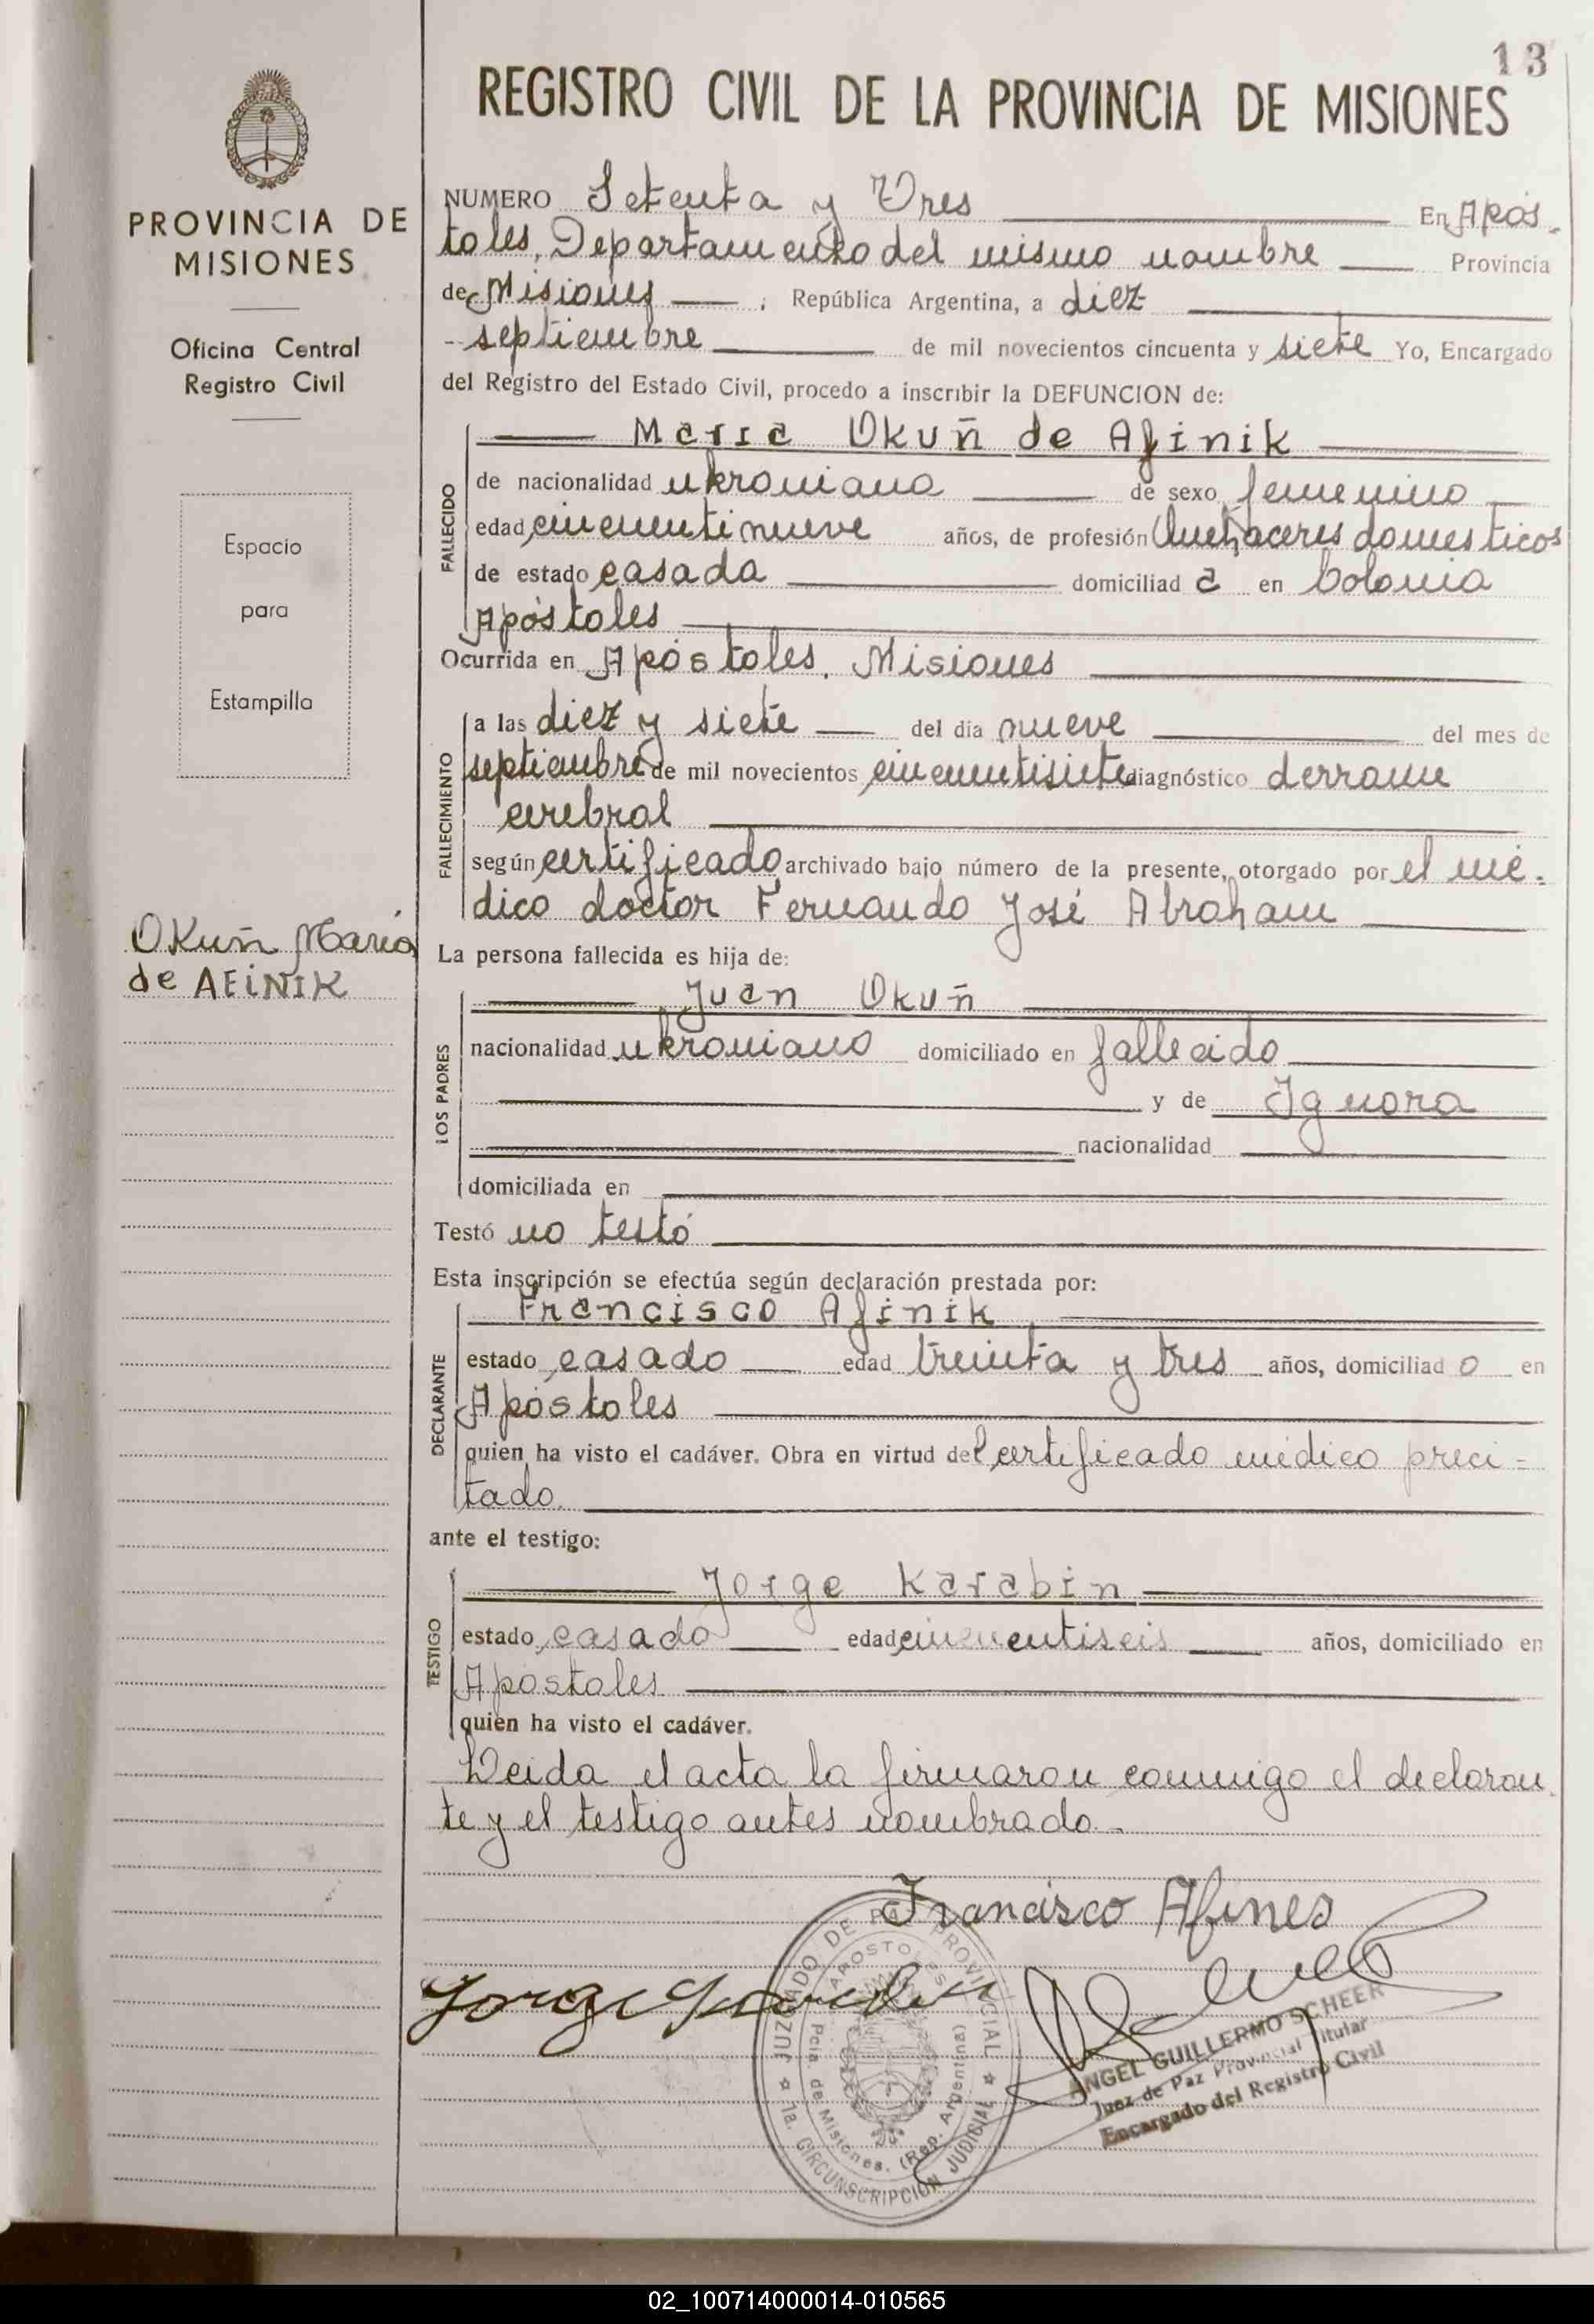 13
REGISTRO CIVIL DE LA PROVINCIA DE MISIONES
PROVINCIA DE
MISIONES
Oficina Central
Registro Civil
Espacio
para
Estampilla
Okuñ María
de AFINIK
NUMERO Setenta y Tres En Após-
toles, Departamento del mismo nombre Provincia
de Misiones, República Argentina, a diez
septiembre de mil novecientos cincuenta y siete Yo, Encargado
del Registro del Estado Civil, procedo a inscribir la DEFUNCION de:
FALLECIDO
Maria Okuñ de Afinik
de nacionalidad ukraniana de sexo femenino
edad cincuentinueve años, de profesión Quehaceres domesticos
de estado casada domiciliad a en Colonia
Apóstoles
Ocurrida en Apóstoles, Misiones
FALLECIMIENTO
a las diez y siete del día nueve del mes de
septiembre de mil novecientos cincuentisiete diagnóstico derrame
cerebral
según certificado archivado bajo número de la presente, otorgado por el mé-
dico doctor Fernando José Abraham
La persona fallecida es hija de:
LOS PADRES
Juan Okuñ
nacionalidad ukraniano domiciliado en fallecido
y de Ignora
nacionalidad
domiciliada en
Testó no testó
Esta inscripción se efectúa según declaración prestada por:
DECLARANTE
Francisco Afinik
estado casado edad treinta y tres años, domiciliad o en
Apóstoles
quien ha visto el cadáver. Obra en virtud del certificado médico preci-
tado.
ante el testigo:
TESTIGO
Jorge Karabin
estado casado edad cincuentiseis años, domiciliado en
Apóstoles
quien ha visto el cadáver.
Leida el acta la firmaron conmigo el declaran-
te y el testigo antes nombrado.
Francisco Afines
Jorge
JUZGADO DE PAZ PROVINCIAL
APOSTOLES
Pcia. de Misiones. (Rep. Argentina)
1a. CIRCUNSCRIPCION JUDICIAL
ANGEL GUILLERMO SCHEER
Juez de Paz Provincial Titular
Encargado del Registro Civil
02_100714000014-010565